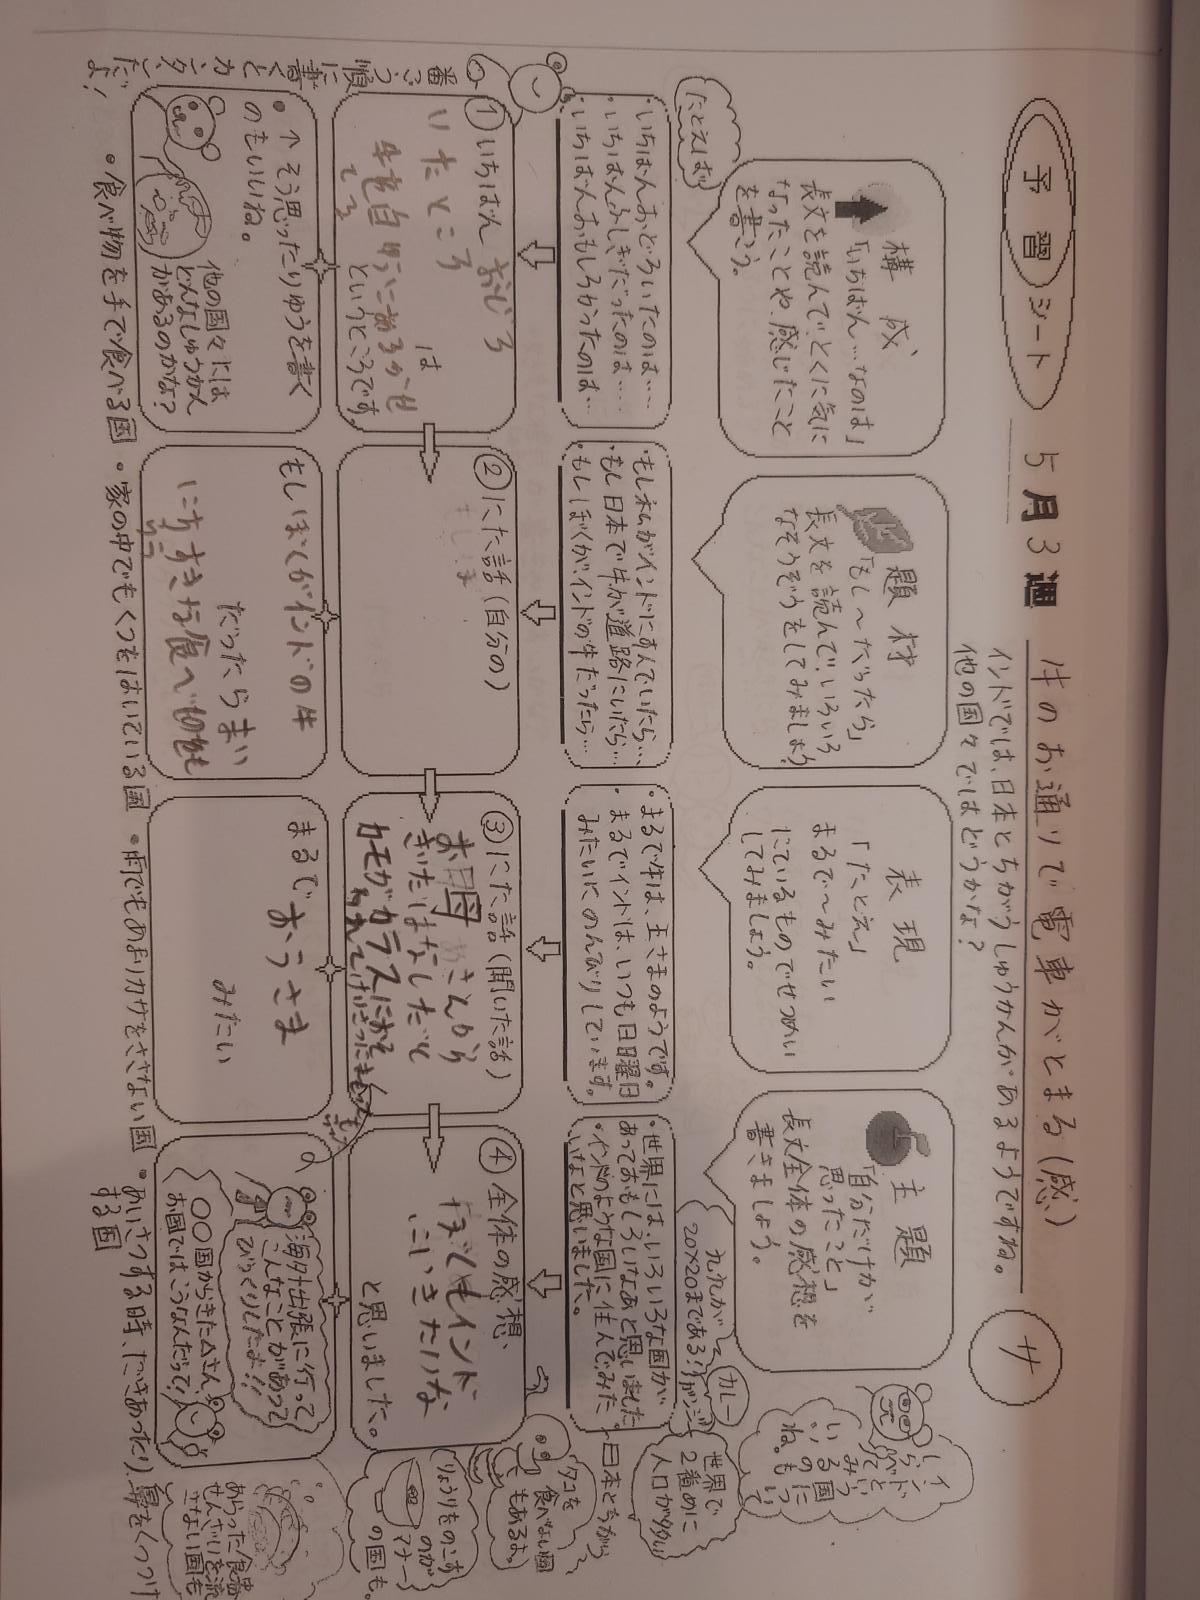 予習シート
5月3週
牛のお通りで電車がとまる(感)
サ
インドでは、日本とちがうしゅうかんがあるようですね。
他の国々ではどうかな?
構成
「いちばん…なのは」
長文を読んで、とくに気に
なったことや、感じたこと
を書こう。
たとえば
・いちばんおどろいたのは…
・いちばんふしぎだったのは…
・いちばんおもしろかったのは…
①いちばん おどろ
いたところ
は
というところです。
・↑そう思ったりゆうを書く
のもいいね。
他の国々には
どんなしゅうかん
があるのかな?
番ごう順に書くとカンタンだよ!
題材
「もし〜だったら」
長文を読んで、いろいろ
なそうぞうをしてみましょう
・もし私がインドにすんでいたら…
・もし日本で牛が道路にいたら…
・もしぼくがインドの牛だったら…
②にた話(自分の)
もしぼくがインドの牛
だったら まい
にち
すきな食べ物を
表現
「たとえ」
まるで〜みたい
にているものでせつめい
してみましょう。
・まるで牛は、王さまのようです。
・まるでインドは、いつも日曜日
みたいにのんびりしています。
③にた話(聞いた話)
お母さんから
きいたはなしだと
カモがカラスにおそ
われて
まるで おうさま
みたい
主題
「自分だけが
思ったこと」
長文全体の感想を
書きましょう。
・世界には、いろいろな国が
あっておもしろいなあと思いました。
・インドのような国に住んでみた
いなと思いました。
④全体の感想、
ぼくもインド
にいきたいな
と思いました。
海外出張に行って
こんなことがあって
びっくりしたよ!!
〇〇国からきた△さん
お国ではこうなんだって!
インドってどんな国
九九が
20×20まである!
カレー
世界で
2番めに
人口が多い
タコを
食べない国
もあるよ。
りょうりをのこす
のが
マナー
の国も。
あらった食器の
せんざいを流
さない国も
・食べ物を手で食べる国 ・家の中でもくつをはいている国 ・雨でもあまりカサをささない国 ・あいさつする時、だきあったり、鼻をくっつけ
する国